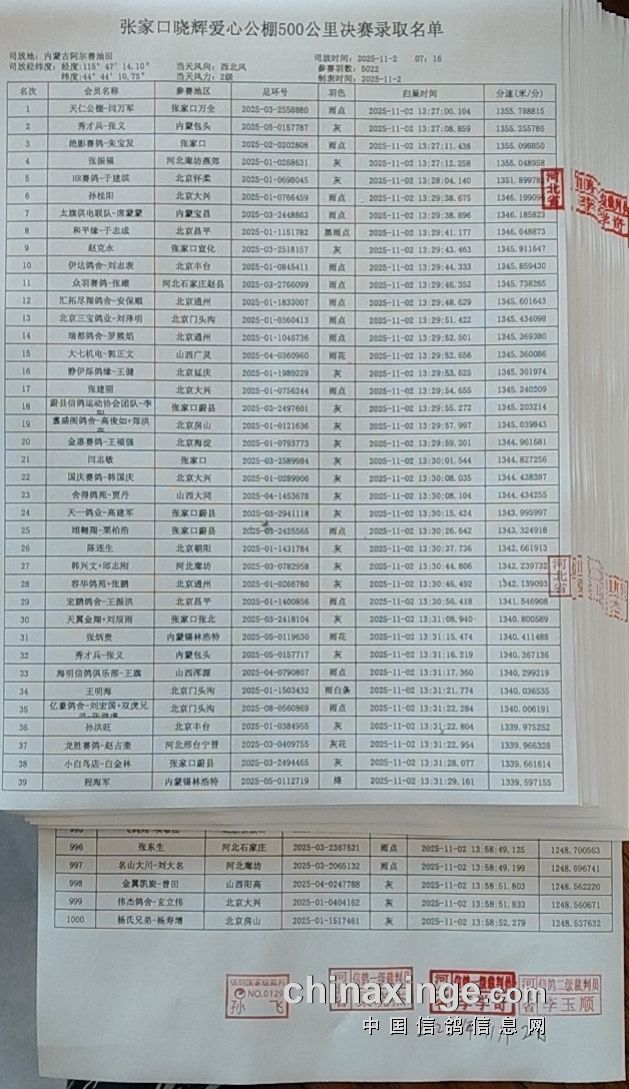 张家口晓辉爱心公棚500公里决赛录取名单
司放地: 内蒙古阿尔善油田 司放时间: 2025-11-2 07: 16
司放经纬度: 经度:115° 47' 14.10" 当天风向: 西北风 参赛羽数: 5022
纬度:44° 44' 10.75" 当天风力: 2级 制表时间: 2025-11-2
名次 会员名称 参赛地区 足环号 羽色 归巢时间 分速(米/分)
1 天仁公棚-闫万军 张家口万全 2025-03-2558880 雨点 2025-11-02 13:27:00.104 1355.788815
2 秀才兵-张义 内蒙包头 2025-05-0157787 灰 2025-11-02 13:27:08.859 1355.255786
3 绝影赛鸽-朱宝发 张家口 2025-02-0202808 雨点 2025-11-02 13:27:11.438 1355.098850
4 张振福 河北廊坊燕郊 2025-01-0268631 灰 2025-11-02 13:27:12.258 1355.048958
5 HR赛鸽-于建滨 北京怀柔 2025-01-0698045 灰 2025-11-02 13:28:04.140 1351.89978
6 孙桂阳 北京大兴 2025-01-0766459 雨点 2025-11-02 13:29:38.675 1346.199096
7 太旗供电联队-席蒙蒙 内蒙宝昌 2025-03-2448863 雨点 2025-11-02 13:29:38.896 1346.185823
8 和平缘-于志成 北京昌平 2025-01-1151782 墨雨点 2025-11-02 13:29:41.177 1346.048873
9 赵克永 张家口宣化 2025-03-2518157 灰 2025-11-02 13:29:43.463 1345.911647
10 伊达鸽舍-刘志表 北京丰台 2025-01-0845411 雨点 2025-11-02 13:29:44.333 1345.859430
11 众羽赛鸽-张雄 河北石家庄赵县 2025-03-2766099 雨点 2025-11-02 13:29:46.352 1345.738265
12 汇拓尽翔鸽舍-安保顺 北京通州 2025-01-1833007 雨点 2025-11-02 13:29:48.629 1345.601643
13 北京三宝鸽业-刘泽明 北京门头沟 2025-01-0360413 雨点 2025-11-02 13:29:51.422 1345.434098
14 瑞都鸽舍-罗熊焰 北京通州 2025-01-1046736 雨点 2025-11-02 13:29:52.501 1345.369380
15 大七机电-郭正文 山西广灵 2025-04-0360960 雨花 2025-11-02 13:29:52.656 1345.360086
16 静伊烁鸽缘-王健 北京延庆 2025-01-1989229 灰 2025-11-02 13:29:53.625 1345.301974
17 张建丽 北京大兴 2025-01-0756244 雨点 2025-11-02 13:29:54.655 1345.240209
18 蔚县信鸽运动协会团队-李 张家口蔚县 2025-03-2497601 灰 2025-11-02 13:29:55.272 1345.203214
19 鑫盛阁鸽舍-高俊如+郑洪 北京房山 2025-01-0121636 灰 2025-11-02 13:29:57.997 1345.039843
20 金惠赛鸽-王福强 北京海淀 2025-01-0793773 灰 2025-11-02 13:29:59.301 1344.961681
21 闫志敏 张家口 2025-03-2589984 灰 2025-11-02 13:30:01.544 1344.827256
22 国庆赛鸽-韩国庆 北京大兴 2025-01-0289906 灰 2025-11-02 13:30:08.035 1344.438387
23 舍得鸽苑-贾丹 山西大同 2025-04-1453678 灰 2025-11-02 13:30:08.104 1344.434255
24 天一鸽业-高建军 张家口蔚县 2025-03-2941118 灰 2025-11-02 13:30:15.424 1343.995997
25 翊翱翔-栗柏浩 张家口蔚县 2025-03-2425565 雨点 2025-11-02 13:30:26.642 1343.324918
26 陈连生 北京朝阳 2025-01-1431784 灰 2025-11-02 13:30:37.736 1342.661913
27 韩兴文+邱志刚 河北廊坊 2025-03-0782958 灰 2025-11-02 13:30:44.806 1342.239732
28 容华鸽苑+张鹏 北京通州 2025-01-0266780 灰 2025-11-02 13:30:46.492 1342.139093
29 宏鹏鸽舍-王振洪 北京昌平 2025-01-1400856 雨点 2025-11-02 13:30:56.418 1341.546908
30 天翼金翔+刘辰雨 张家口张北 2025-03-2418104 灰 2025-11-02 13:31:08.940 1340.800589
31 张炳贵 内蒙锡林浩特 2025-05-0119630 雨花 2025-11-02 13:31:15.474 1340.411488
32 秀才兵-张义 内蒙包头 2025-05-0157717 灰 2025-11-02 13:31:16.219 1340.367136
33 海明信鸽俱乐部-王旗 山西浑源 2025-04-0790807 雨点 2025-11-02 13:31:17.360 1340.299219
34 王明海 北京门头沟 2025-01-1503432 雨白条 2025-11-02 13:31:21.774 1340.036535
35 亿豪鸽舍-刘宏国+双虎兄 北京门头沟 2025-08-0560869 雨点 2025-11-02 13:31:22.284 1340.006191
36 孙洪旺 北京丰台 2025-01-0384955 灰 2025-11-02 13:31:22.804 1339.975252
37 龙胜赛鸽-赵占奎 河北邢台宁晋 2025-03-0409755 灰花 2025-11-02 13:31:22.954 1339.966328
38 小白鸟店-白金林 张家口蔚县 2025-03-2494465 灰 2025-11-02 13:31:28.077 1339.661614
39 程海军 内蒙锡林浩特 2025-05-0112719 绛 2025-11-02 13:31:29.161 1339.597155
996 张东生 河北石家庄 2025-03-2367521 雨点 2025-11-02 13:58:49.125 1248.700563
997 名山大川-刘大名 河北廊坊 2025-03-2065132 雨点 2025-11-02 13:58:49.199 1248.696741
998 金翼凯旋-曾田 山西阳高 2025-04-0247788 灰 2025-11-02 13:58:51.803 1248.562220
999 伟杰鸽舍-玄立伟 北京大兴 2025-01-0404162 灰 2025-11-02 13:58:51.833 1248.560671
1000 杨氏兄弟-杨寿增 北京房山 2025-01-1517461 灰 2025-11-02 13:58:52.279 1248.537632
河北省
李学奇
河北省
信鸽国家级裁判 信鸽一级裁判员 信鸽一级裁判员 信鸽二级裁判员
NO.0129
孙飞 李学奇 李玉顺
chinaxinge.com
中国信鸽信息网